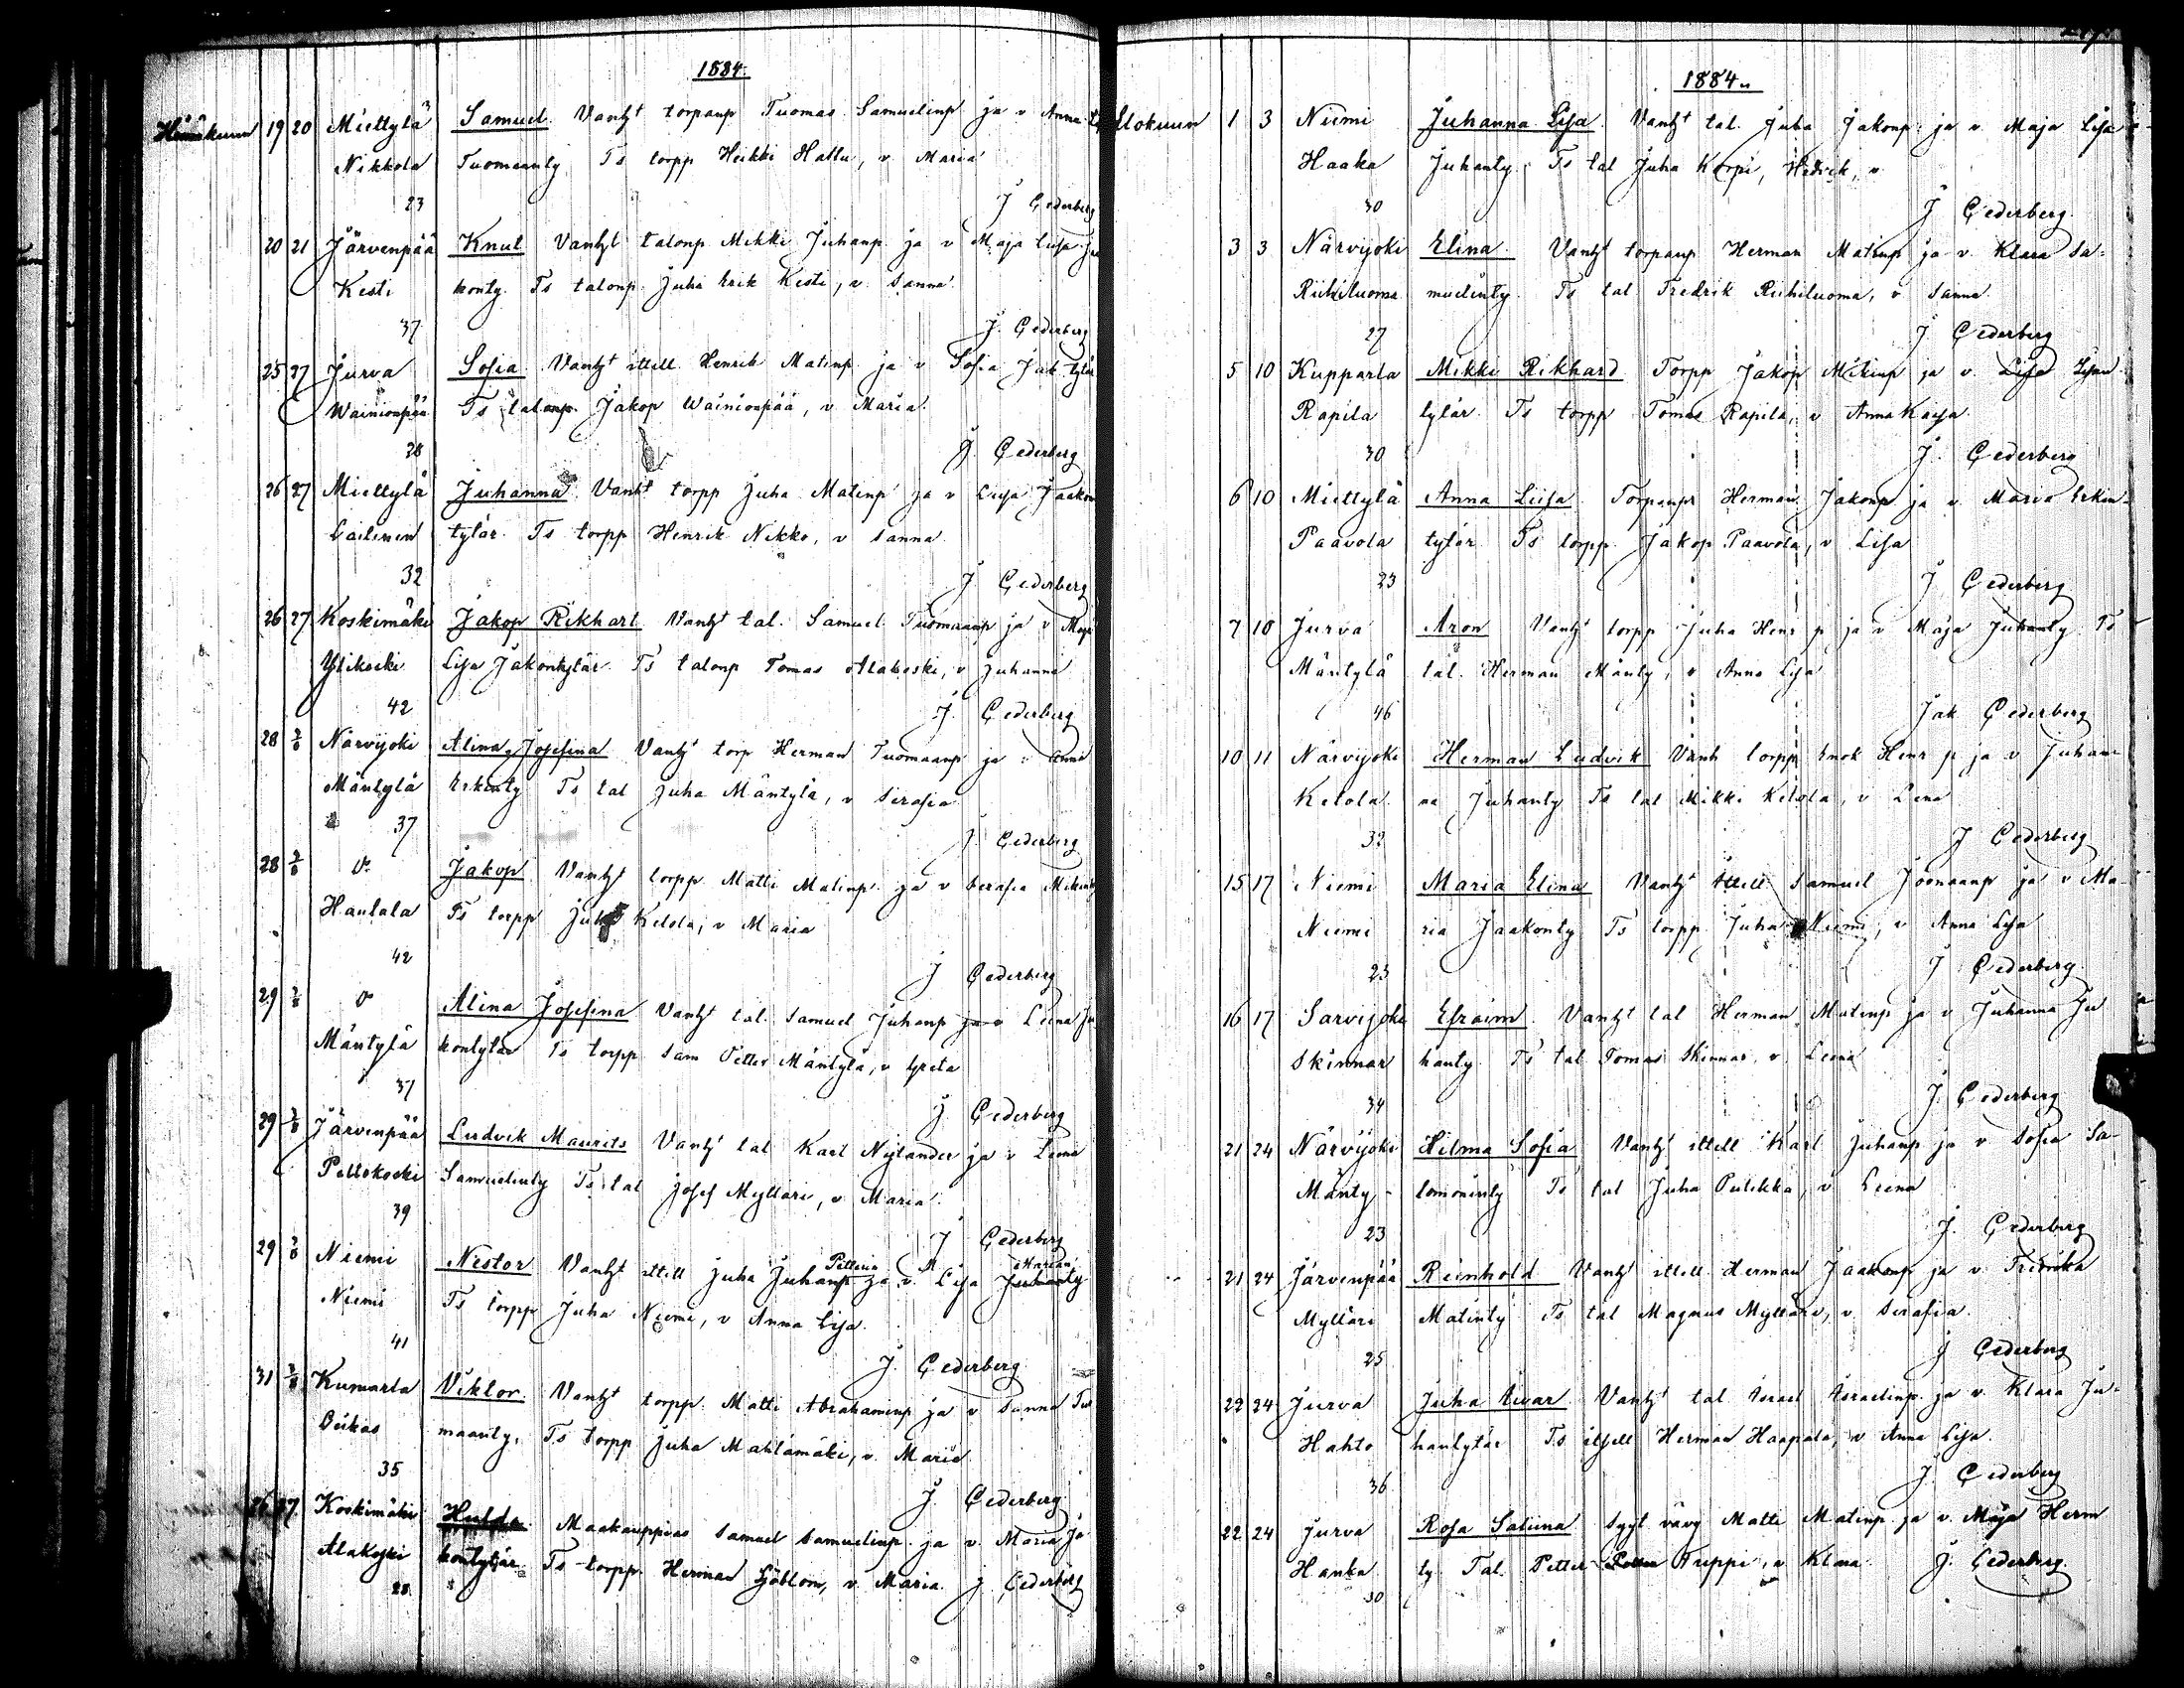 1884.
Heinäkuun 19 20 Miettylä Samuel Vanht torpanp Tuomas Samuelinp ja v Anna
Nikkola Tuomaanty Ts torpp Heikki Hattu, v. Maria
23 J Cederberg
20 21 Järvenpää Knut Vanht talonp Mikki Juhanp ja v Maja Lisa
Kesti konty. Ts talonp Juha Erik Kesti, v. Sanna
37 J. Cederberg
25 27 Jurva Sofia Vanht ittell Henrik Matinp ja v Sofia Jak tytär
Wainionpää Ts talonp Jakop Wainionpää, v. Maria
28 J. Cederberg
26 27 Miettylä Juhanna Vanht torpp Juha Matinp ja v Lisa Jaakon
Lailinen tytär. Ts torpp Henrik Nikko, v Sanna
32 J Cederberg
26 27 Koskimäki Jakop Rikhart Vanht tal. Samuel Tuomaanp ja v Maja
Ylikoski Lisa Jakontytär Ts talonp Tomas Alakoski, v Juhanna
42 J. Cederberg
28 Närvijoki Alina Josefina Vanht torp Herman Tuomaanp ja v Anna
Mäntylä Erkinty Ts tal Juha Mäntylä, v Serafia
37 J Cederberg
28 Jakop Vanht torpp Matti Matinp ja v Serafia Mikinty
Hautala Ts torpp Juha Ketola, v Maria
42 J Cederberg
29 Alina Josefina Vanht tal. Samuel Juhanp ja v Leena Ja
Mäntylä kontytär Ts torpp Sam Petter Mäntylä, v Greta
37 J. Cederberg
29 Järvenpää Ludvik Maurits Vanht tal Karl Nylander ja v Leena
Peltokoski Samuelinty Ts tal Josef Myllari, v Maria
39 J Cederberg
Petterin Marian
29 Niemi Nestor Vanht ittell Juha Juhanp ja v. Lisa Juhanty
Niemi Ts torpp Juha Niemi, v Anna Lisa.
41 J. Cederberg
31 Viktor Vanht torpp. Matti Abrahaminp ja v Sanna Tuo
maanty. Ts torpp Juha Mahlamäki, v. Maria
35 J. Cederberg
26 27 Koskimäki Hulda Maakauppias Samuel Samuelinp. ja v. Maria Ja
Alakoski kontytär Ts torpp. Herman Sjöblom, v. Maria. J Cederberg
28
1884.
Elokuun 1 3 Niemi Juhanna Lisa Vanht tal. Juha Jakonp ja v Maja Lisa
Haaka Juhanty. Ts tal Juha Korpi, Hedvik, v
30 J Cederberg
3 3 Närvijoki Elina Vanht torpanp Herman Matinp ja v. Klara Sa-
Riihiluoma muelinty. Ts tal Fredrik Riihiluoma, v Sanna.
27 J Cederberg
5 10 Kupparla Mikki Rikhard Torpp Jakop Mikinp ja v. Lisa
Rapila tytär. Ts torpp Tomas Rapila, v Anna Kaisa
30 J. Cederberg
6 10 Miettylä Anna Liisa Torpanp Herman Jakonp ja v Maria Erkin-
Paavola tytär Ts torpp. Jakop Paavola, v Lisa
23 J Cederberg
7 10 Jurva Aron Vanht torpp Juha Henr p ja v Maja Juhanty. Ts
Mäntylä tal. Herman Mänty, v Anna Lisa
46 Jak Cederberg
10 11 Närvijoki Herman Ludvik Vanh torpp Enok Henr p ja v Juhan-
Ketola na Juhanty Ts tal Mikki Ketola, v Lena
32 J Cederberg
15 17 Niemi Maria Elina Vanht ittell Samuel Joonaanp ja v Ma-
Niemi ria Jaakonty Ts torpp Juha Niemi, v Anna Lisa
23 J Cederberg
16 17 Sarvijoki Efraim. Vanht tal Herman Matinp ja v Juhanna Ju
Skinnar hanty. Ts tal Tomas Skinnar, v. Leena
34 J. Cederberg
21 24 Närvijoki Hilma Sofia Vanht ittell Karl Juhanp ja v Sofia Sa-
Mänty- lomoninty Ts tal Juha Pulikka, v Leena
23 J. Cederberg
21 24 Järvenpää Reinhold Vanht ittell Herman Jaakonp ja v Fredrika
Mylläri Matinty Ts tal Magnus Mylläri, v. Serafia.
25 J Cederberg
22 24 Jurva Juha Iivar Vanht tal Israel Israelinp. ja v. Klara Ju-
Hahto hantytär Ts ittell Herman Haapala, v Anna Lisa.
36 J. Cederberg
22 24 Jurva Rosa Salina Matti Matinp. ja v. Maja Herm
Hanka ty. Tal. Petter Tuppi, v Klara J. Cederberg
30